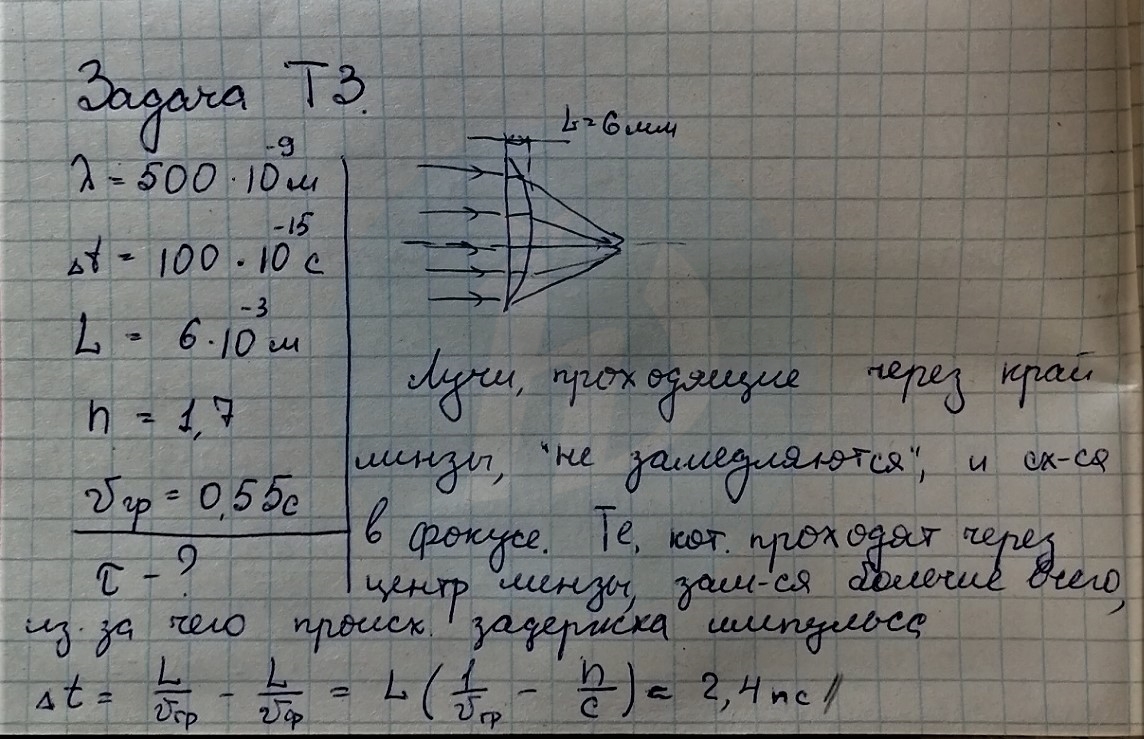 Задача Т3.
L=6мм
λ = 500 · 10⁻⁹ м
Δt = 100 · 10⁻¹⁵ с
L = 6 · 10⁻³ м
n = 1,7
υгр = 0,55с
τ - ?
Лучи, проходящие через край
линзы, "не замедляются", и сх-ся
в фокусе. Те, кот. проходят через
центр линзы, зам-ся более всего,
из-за чего происх. задержка импульса
Δt = L/υгр - L/υф = L(1/υгр - n/c) = 2,4пс //